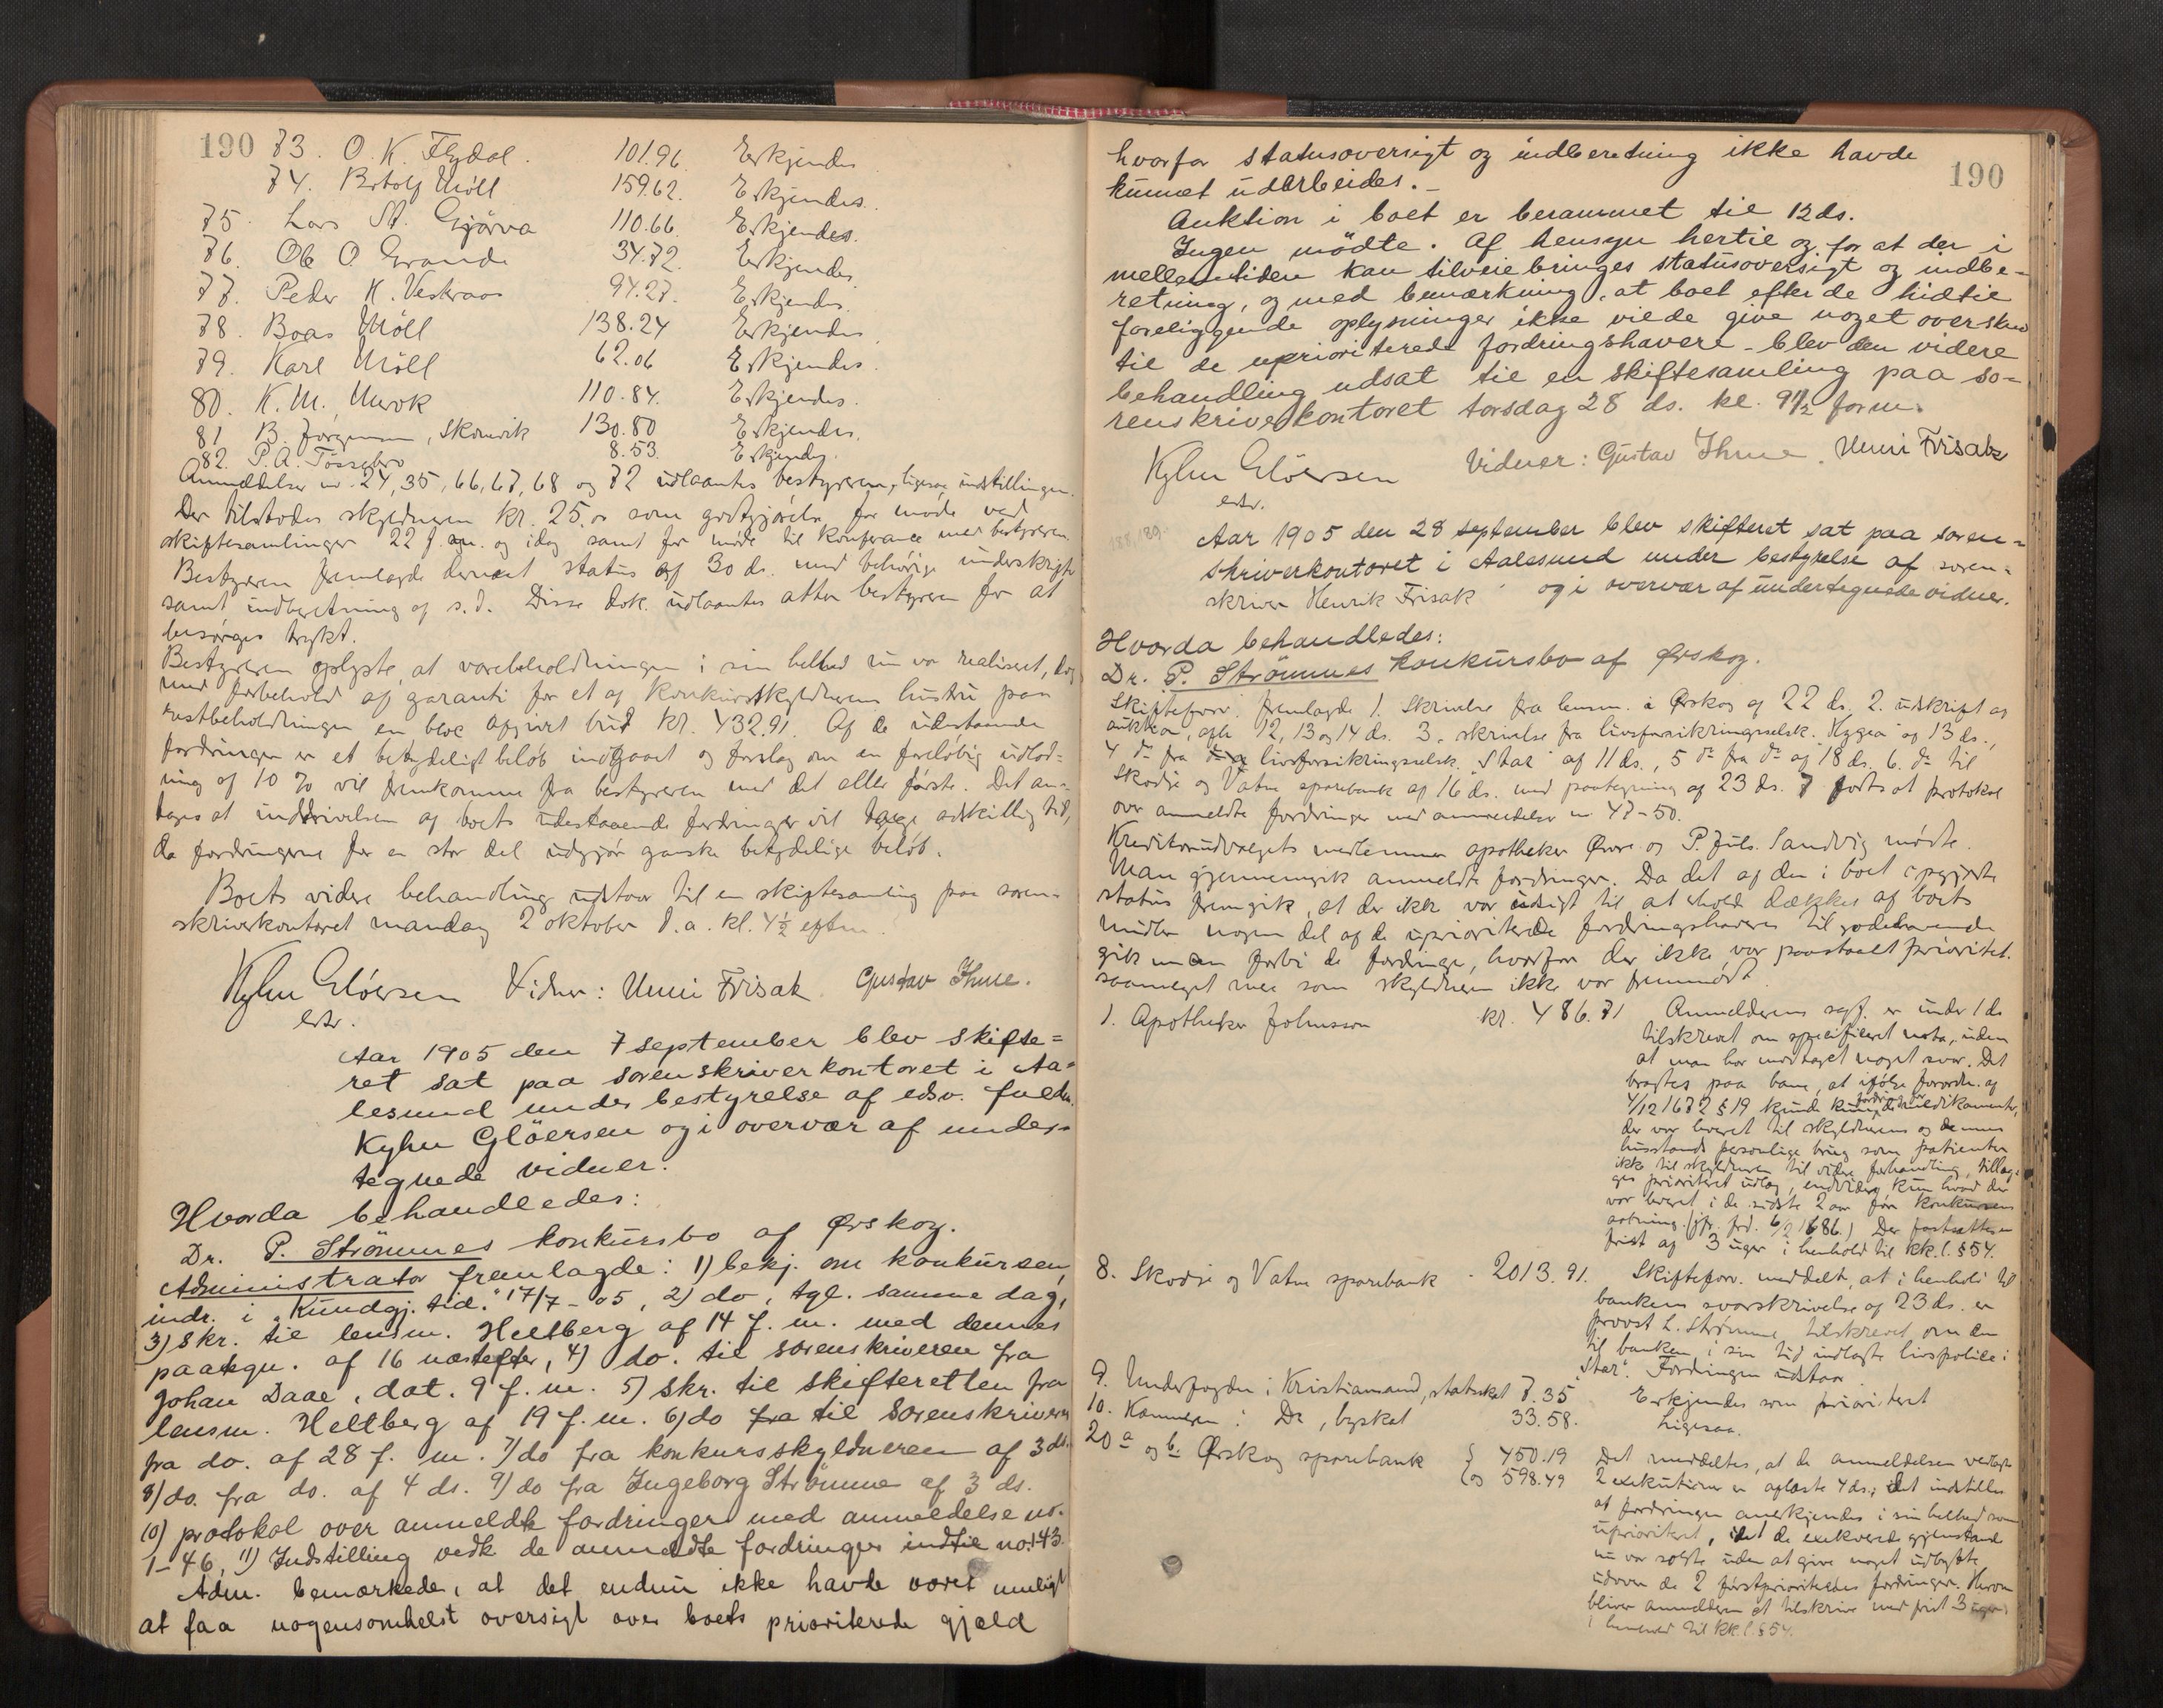 190
73. O. K. Flydal. 101.96 Erkjendes
74. Botolf Möll 159.62. Erkjendes.
75. Lars St. Gjörva 110.66. Erkjendes.
76. Ole O. Grande 34.72. Erkjendes.
77. Peder K. Vestraas 94.27. Erkjendes.
78. Boas Möll 138.24 Erkjendes.
79. Karl Möll 62.06 Erkjendes.
80. K. M. Murok 110.84. Erkjendes.
81 B. Jørgensen, Skomvik 130.80 Erkjendes.
82. P. A. Tøssebro 8.53. Erkjendes.
Anmeldelse nr. 24, 35, 66, 67, 68 og 72 udlaantes bestyreren, ligesaa indstillingen.
Der tilstodes skyldneren kr. 25.00 som godtgjörelse for møde ved
skiftesamlinger 22 f. m. og idag samt for møde til konferance med bestyreren.
Bestyreren fremlagde dernæst status af 30 ds. med behörig underskrift
samt indberetning af s. d. Disse dok. udlaantes atter bestyreren for at
besörges trykt.
Bestyreren oplyste, at varebeholdningen i sin helhed nu var realiseret, dog
med forbehold af garanti for et af konkursskyldnerens hustru paa
restbeholdningen en bloc afgivet bud kr. 432.91. Af de udestaaende
fordringer er et betydeligt beløb indgaaet og forslag om en foreløbig udlod=
ning af 10 % vil fremkomme fra bestyreren med det aller første. Det an=
tages at inddrivelsen af boets udestaaende fordringer vil tage adskillig tid,
da fordringerne for en stor del udgjør ganske betydelige beløb.
Boets videre behandling udstaar til en skiftesamling paa soren=
skriverkontoret mandag 2 oktober d. a. kl. 4½ eftm.
Kyhn Glöersen Vidner: Unni Frisak. Gustav Ihme.
edsv.
Aar 1905 den 7 september blev skifte=
ret sat paa sorenskriverkontoret i Aa=
lesund under bestyrelse af edsv. fuldm.
Kyhn Glöersen og i overvær af under=
tegnede vidner.
Hvorda behandledes:
Dr. P. Strömmes konkursbo af Ørskog.
Administrator fremlagde: 1) bekj. om konkursen,
indr. i "Kundgj. tid." 17/7 - 05, 2) do, tgl. samme dag,
3) skr. til lensm. Heltberg af 14 f. m. med dennes
paategn. af 16 næstefter, 4) do. til sorenskriveren fra
Johan Daae, dat. 9 f. m. 5) skr. til skifteretten fra
lensm. Heltberg af 19 f. m. 6) do fra til sorenskriveren
fra do. af 28 f. m. 7) do fra konkursskyldneren af 3 ds.
8) do. fra do. af 4 ds. 9) do fra Ingeborg Strömme af 3 ds.
10) protokol over anmeldte fordringer med anmeldelse no.
1-46, 11) Indstilling vedk de anmeldte fordringer indtil no. 43.
Adm. bemærkede, at det endnu ikke havde været muligt
at faa nogensomhelst oversigt over boets prioriterede gjæld
190
hvorfor statusoversigt og indberetning ikke havde
kunnet udarbeides. -
Auktion i boet er berammet til 12 ds.
Ingen mödte. Af hensyn hertil og for at der i
mellemtiden kan tilveiebringes statusoversigt og indbe-
retning, og med bemærkning, at boet efter de hidtil
foreliggende oplysninger ikke vilde give noget overskud
til de uprioriterede fordringshavere - blev den videre
behandling udsat til en skiftesamling paa so=
renskriverkontoret torsdag 28 ds. kl. 9½ form.
Kyhn Glöersen Vidner: Gustav Ihme. Unni Frisak
edsv.
188/89.
Aar 1905 den 28 september blev skifteret sat paa soren=
skriverkontoret i Aalesund under bestyrelse af soren=
skriver Henrik Frisak og i overvær af undertegnede vidner.
Hvorda behandledes:
Dr. P. Strömmes konkursbo af Ørskog.
Skifteforv. fremlagde 1. Skrivelse fra lensm. i Ørskog af 22 ds. 2. udskrift af
auktion, afh. 12, 13 og 14 ds. 3. skrivelse fra livsforsikringsselsk. Hygea af 13 ds.,
4 do fra livsforsikringsselsk. "Star" af 11 ds., 5 do fra do af 18 ds. 6. do til
Skodje og Vatne sparebank af 16 ds. med paategning af 23 ds. 7 forts. af protokol
over anmeldte fordringer med anmeldelse nr. 47-50.
Kreditorudvalgets medlemmer apotheker Øwre og P. Juls. Sandvig mødte.
Man gjennemgik anmeldte fordringer. Da det af den i boet opgjorte
status fremgik, at der ikke var udsigt til at erholde dækket af boets
midler nogen del af de uprioriterede fordringshaveres tilgodehavende
gik man forbi de fordringer, hvorfor der ikke var paastaaet prioritet.
saameget mer som skyldneren ikke var fremmødt.
1. Apotheker Johnsson kr. 486.71 Anmelderens sagf. er under 1 ds
tilskrevet om specificeret nota, uden
at man har modtaget noget svar. Det
bragtes paa bane, at ifølge forordn. af
4/12 1672 § 19 kunde kun fordring for medikamenter,
der var leveret til skyldnerens og dennes
husstands personlige brug som patienter
ikke til skyldneren til videre forhandling, tillæg-
ges prioriteret udlæg, endvidere kun hvad der
var leveret i de sidste 2 aar før konkursens
aabning. (jfr. frd. 6/2 1686.) Der fastsættes en
frist af 3 uger i henhold til kk.l. § 54.
8. Skodje og Vatne sparebank - 2013.91. Skifteforv. meddelte, at i henhold til
bankens svarskrivelse af 23 ds. er
provst L. Strømme tilskrevet om den
til banken i sin tid indlagte livspolice i
"Star". Fordringen udstaar.
9. Underfogden i Kristiansand, statsskat 7.35 Erkjendes som prioriteret
10. Kæmneren i Do, byskat 33.58. Ligesaa.
20 a og b. Ørskog sparebank { 450.19 Det meddeltes, at de anmeldelsen vedlagte
{ og 598.49 2 exekutioner er aflæste 4 ds.; det indstilles
at fordringen anerkjendes i sin helhed som
uprioriteret, idet de exekverede gjenstande
nu var solgte uden at give noget udbytte
udover de 2 førstprioriterede fordringer. Herom
bliver anmelderen at tilskrive med frist 3 uger
i henhold til kk.l. § 54.